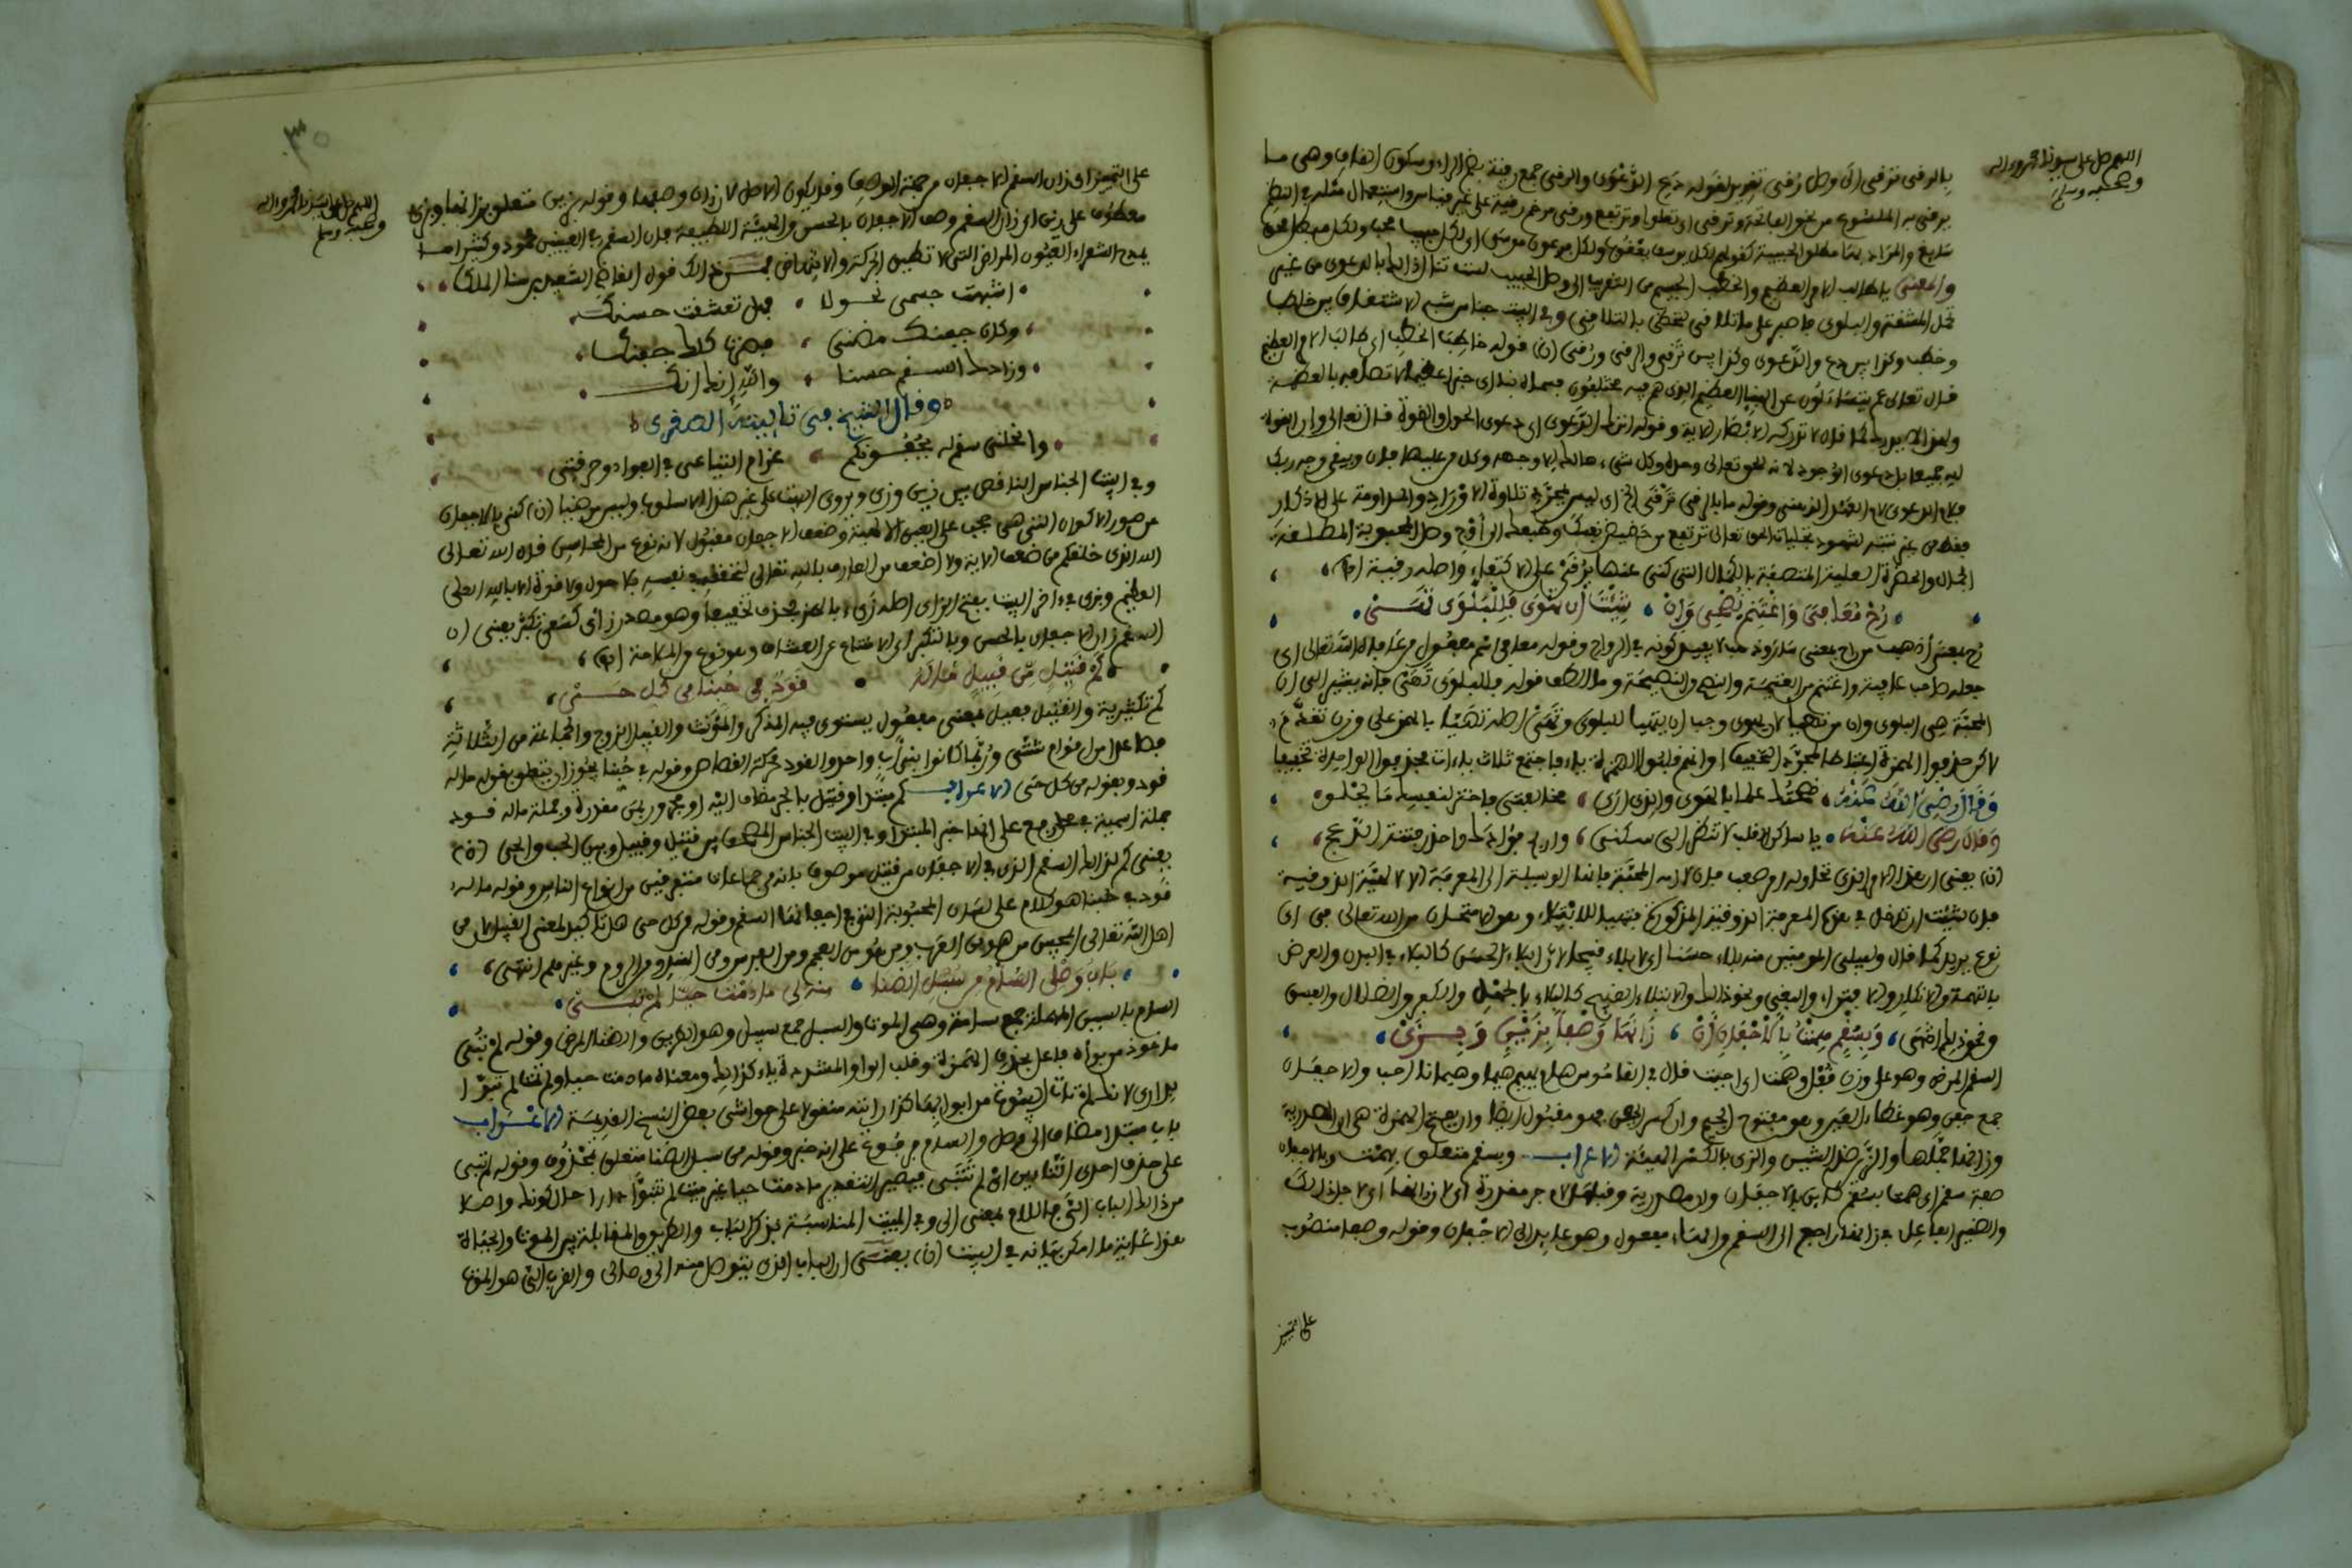 اللهم صل على سيدنا محمد واله
وصحبه وسلم
بالرقى ترقى الى وصل رقى تقرير لقوله دع الدعوى والرقى جمع رقية بضم الراء وسكون القاف وهى ما
يرقى به الملسوع من نحو الفاتحة وترقى اى تعلوا وترتفع ورقى مرخم رقية على غير قياس واستعمال مثله فى النظم
سايغ والمراد بها مطلق الحبيبة كقولهم لكل يوسف يعقوب ولكل فرعون موسى اى لكل حبيب محب ولكل مبطل محق
والمعنى يا طالب الامر العظيم والخطب الجسيم من التقرب الى وصل الحبيب لست تنال ذالك بالدعوى من غير
تحمل المشقة والبلوى فاصبر على ما تلاقى لتحظى بالتلاقى وفى البيت جناس شبه الاشتقاق بين خاطب
وخطب وكذا بين دع والدعوى وكذا بين ترقى والرقى ورقى (ن) قوله خاطب الخطب اى طالب الامر العظيم
قال تعالى عم يتساءلون عن النبإ العظيم الذى هم فيه مختلفون فسماه نبا اى خبرا عظيما لاتصافه بالعظمة
ولهذا لا يدرك كما قال لا تدركه الابصار الاية وقوله اترك الدعوى اى دعوى الحول والقوة قال تعالى ان القوة
لله جميعا بل دعوى الوجود لانه للحق تعالى وحده وكل شىء هالك الا وجهه وكل من عليها فان ويبقى وجه ربك
فقط من غير تنبه لشهود تجليات الحق تعالى ترتفع من حضيض نفسك وطبعك الى اوج وصل المحبوبة المطلقة
الجمال والحضرة العلية المتصفة بالكمال التى كنى عنها برقى على الاكتفاء واصله رقية اه
رح معافى واغتنم نصحى وان شئت ان تهوى فللبلوى تهى
رح بمعنى اذهب من راح بمعنى سار وذهب لا بقيد كونه فى الرواح وقوله معافى اسم مفعول من عافاه الله تعالى اى
جعله صاحب عافية واغتنم من الغنيمة والنصح والنصيحة وما الطف قوله فللبلوى تهى فانه يشير الى ان
المحبة هى البلوى وان من تهيا للهوى وجب ان يتهيا للبلوى وتهى اصله تهيا بالهمز على وزن تقدم
لاكن حذفوا الهمزة اعتباطا لمجرد التخفيف او انهم قلبوا الهمزة ياء فاجتمع ثلاث ياءات فحذفوا الواحدة تخفيفا
وقال رضى الله عنه نصحتك علما بالهوى والذى ارى مخالفتى فاختر لنفسك ما يحلو
وقال رضى الله عنه يا ساكن القلب لا تنظر الى سكنى واربح فؤادك واحذر فتنة الدعج
(ن) يعنى ان هذا الامر الذى تحاوله امر صعب فان لازمه المحبة فانها الوسيلة الى المعرفة الالهية الذوقية
فان شئت ان تدخل فى بحر المعرفة الذوقية المذكورة فتهيا للابتلاء وهو الامتحان من الله تعالى فى اى
نوع يريد كما قال وليبلى المومنين منه بلاء حسنا اى لا بلاء قبيحا لان البلاء الحسن كالبلاء فى البدن والعرض
بالتهمة والانكار والافتراء والبغى ونحو ذالك والابتلاء القبيح كالبلاء بالجهل والكفر والضلال والفسق
ونحو ذلك انتهى وبسقم همت بالاجفان ان زانها وصفا بزين وبزى
السقم المرض وهو على وزن قفل وهمت اى احببت قال فى القاموس هام يهيم هيما وهيمانا احب والاجفان
جمع جفن وهو غطاء العين وهو مفتوح الجيم وان كسر الجفن فهو مقبول ايضا وان بفتح الهمزة هى ان المصدرية
وزانها جملها والزين ضد الشين والزى بالكسر الهيئة الاعراب وبسقم متعلق بهمت وبالاجفان
صفة سقم اى همت بسقم كائن بالاجفان وان مصدرية وقبلها لام جر مقدرة اى لان زانها اى لاجل ذالك
والضمير الفاعل فى زانها راجع الى السقم والهاء مفعول وهو عايد الى الاجفان وقوله وصفا منصوب
على التمييز
٣٠
اللهم صل على سيدنا محمد واله
وصحبه وسلم
على التمييز اى زان السقم الاجفان من جهة الوصف وقد يكون الاصل لان زان وصفها وقوله بزين متعلق بزانها وبزى
معطوف على زين اى زان السقم وصف الاجفان بالحسن والهيئة اللطيفة فان السقم فى العينين محمود وكثيرا ما
يمدح الشعراء العيون المراض التى لا تطيق الحركة والانتهاض فمن ذالك قول القاضى السعيد بن سنا الملك
اشبهت جسمى نحولا فهل تعشقت حسنك
وكان جفنك مضنى فصرت كلك جفنك
وزادك السقم حسنا والله انك انك
وقال الشيخ فى تاييته الصغرى
وانحلنى سقم له بجفونكم غرام التياعى فى الفؤاد وحرقتى
وفى البيت الجناس الناقص بين زين وزى ويروى البيت على غير هذا الاسلوب وليس مرضيا (ن) كنى بالاجفان
عن صور الاكوان التى هى حجب على العين الالهية وضعف الاجفان مقبول لانه نوع من المحاسن قال الله تعالى
الله الذى خلقكم من ضعف الاية ولا اضعف من العارف بالله تعالى لتحققه فى نفسه بلا حول ولا قوة الا بالله العلى
العظيم وبزى فى ءاخر البيت بفتح الزاى اصله زىء بالهمز فحذف تخفيفا وهو مصدر زاى كسعى تكبر يعنى ان
السقم زان الاجفان بالحسن وبالتكبر اى الامتناع عن العشاق وهو نوع من الملاحة اه
كم قتيل من قبيل ماله قود فى حبنا من كل حى
كم تكثيرية والقتيل فعيل بمعنى مفعول يستوى فيه المذكر والمؤنث والقبيل الزوج والجماعة من الثلاثة
فصاعدا من اقوام شتى وربما كانوا بنى اب واحد والقود محركة القصاص وقوله فى حبنا يجوز ان يتعلق بقوله ماله
قود وبقوله من كل حى الاعراب كم مبتدا وقتيل بالجر مضاف اليه او مجرور بمن مقدرة وجملة ماله قود
جملة اسمية فى محل رفع على انها خبر المبتدا وفى البيت الجناس المصحف بين قتيل وقبيل وبين الحب والحى (ن)
يعنى كم لذالك السقم الذى فى الاجفان من قتيل موصوف بانه من جماعات متفرقين من انواع الناس وقوله ماله
قود فى حبنا هو كلام على لسان المحبوبة التى فى اجفانها السقم وقوله من كل حى هذا تاكيد لمعنى القبيل من
اهل الله تعالى المحبين من هو من العرب ومن هو من العجم ومن الفرس ومن الهند ومن الروم وغيرهم انتهى
باب وصلى السام من سبل الضنا منه لى ما دمت حيا لم تبى
السام بالسين المهملة جمع سامة وهى الموت والسبل جمع سبيل وهو الطريق والضنا المرض وقوله لم تبى
ماخوذ من بواه فاعل بحذف الهمزة وقلب الواو المشددة ياء كذالك ومعناه ما دمت حيا ولم تمت لم تبوا
الدار لانك لم تات البيوت من ابوابها كذا رايته منقولا على حواشى بعض النسخ القديمة الاعراب
باب مبتدا مضاف الى وصل والسام مرفوع على انه خبر وقوله من سبل الضنا متعلق بمحذوف وقوله لم تبى
على حذف احدى التاءين اى لم تتبى فيصير التقدير ما دمت حيا غير ميت لم تتبوا دارا حال كونك واصلا
من ذالك الباب الى فاللام بمعنى الى وفى البيت المناسبة بذكر الباب والطريق والمقابلة بين الموت والحياة
هذا غاية ما امكن بيانه فى البيت (ن) يعنى ان الباب الذى يتوصل منه الى وصالى والقرب الى هو الموت